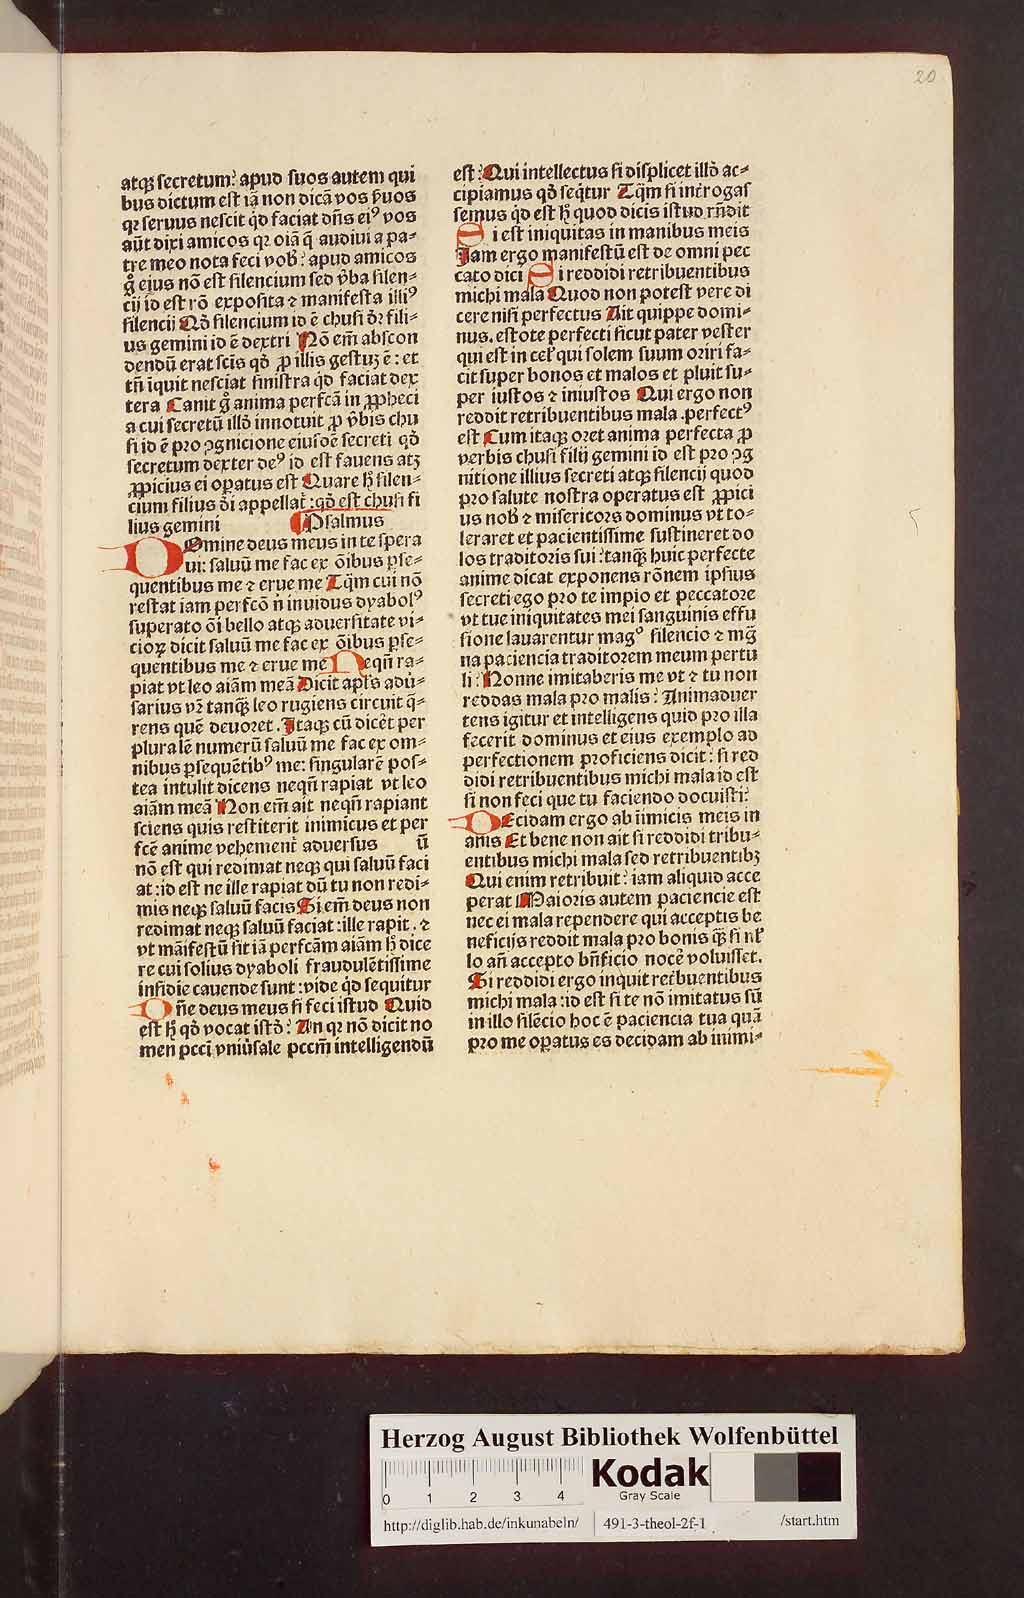 20
atqȝ secretum? apud suos autem qui
bus dictum est iā non dicā vos s̄uos
qꝛ seruus nescit qd̄ faciat dn̄s eiꝰ vos
aūt dixi amicos qꝛ oīa q̄ audiui a pa-
tre meo nota feci vob̄? apud amicos
gͦ eius nō est silencium sed v̄ba silen-
cij id est rō exposita ⁊ manifesta illiꝰ
silencij Qd̄ silencium id ē chusi dr̄? fili-
us gemini id ē dextri Nō em̄ abscon
dendū erat scis qd̄ ꝓ illis gestuȝ ē: et
tn̄ īquit nesciat sinistra qd̄ faciat dex
tera Canit gͦ anima perfcā in ꝓpheci
a cui secretū illd̄ innotuit ꝓ v̄bis chu
si id ē pro ꝯgnicione eiusdē secreti qd̄
secretum dexter deꝰ id est fauens atȝ
ꝓpicius ei oꝑatus est Quare hͦ silen-
cium filius dr̄i appellat̄: qd̄ est chusi fi
lius gemini Psalmus
Domine deus meus in te spera
ui: saluū me fac ex ōibus ꝑse-
quentibus me ⁊ erue me Tq̄m cui nō
restat iam perfcō n̄ inuidus dyabolꝰ
superato ōi bello atqȝ aduersitate vi-
cioꝝ dicit saluū me fac ex ōibus ꝑse-
quentibus me ⁊ erue me Nequn̄ ra-
piat vt leo aīam meā Dicit apl̄s adū-
sarius vr̄ tanqȝ leo rugiens circuit q̄-
rens quē deuoret. Itaqȝ cū dicēt per
pluralē numerū saluū me fac ex om-
nibus ꝑsequētibꝰ me: singularē pos-
tea intulit dicens nequn̄ rapiat vt leo
aīam meā Non em̄ ait nequn̄ rapiant
sciens quis restiterit inimicus et per
fcē anime vehement̄ aduersus ū
nō est qui redimat neqȝ qui saluū faci
at: id est ne ille rapiat dū tu non redi-
mis neqȝ saluū facis Si em̄ deus non
redimat neqȝ saluū faciat: ille rapit. ⁊
vt māifestū sit iā perfcām aīam hͦ dice
re cui solius dyaboli fraudulētissime
insidie cauende sunt: vide qd̄ sequitur
Dn̄e deus meus si feci istud Quid
est hͦ qd̄ vocat istd̄? An qꝛ nō dicit no
men pcci vniu̇sale pccm̄ intelligendū
est? Qui intellectus si displicet illd̄ ac-
cipiamus qd̄ seq̄tur Tq̄m si int̄rogas
semus qd̄ est hͦ quod dicis istud rn̄dit
Si est iniquitas in manibus meis
Iam ergo manifestū est de omni pec
cato dici Si reddidi retribuentibus
michi mala Quod non potest vere di
cere nisi perfectus Ait quippe domi-
nus. estote perfecti sicut pater vester
qui est in cel̄ qui solem suum oriri fa-
cit super bonos et malos et pluit su-
per iustos ⁊ iniustos Qui ergo non
reddit retribuentibus mala. perfectꝰ
est Cum itaqȝ oret anima perfecta ꝓ
verbis chusi filij gemini id est pro ꝯg
nitione illius secreti atqȝ silencij quod
pro salute nostra operatus est ꝓpici
us nob̄ ⁊ misericors dominus vt to-
leraret et pacientissime sustineret do
los traditoris sui? tanqȝ huic perfecte
anime dicat exponens rōnem ipsius
secreti ego pro te impio et peccatore
vt tue iniquitates mei sanguinis effu
sione lauarentur magͦ silencio ⁊ mḡ
na paciencia traditorem meum pertu
li? Nonne imitaberis me vt ⁊ tu non
reddas mala pro malis? Animaduer
tens igitur et intelligens quid pro illa
fecerit dominus et eius exemplo ad
perfectionem proficiens dicit: si red
didi retribuentibus michi mala id est
si non feci que tu faciendo docuisti?
Decidam ergo ab iimicis meis in
anis Et bene non ait si reddidi tribu-
entibus michi mala sed retribuentibȝ
Qui enim retribuit? iam aliquid acce
perat Maioris autem paciencie est
nec ei mala rependere qui acceptis be
neficijs reddit mala pro bonis qȝ si nl̄
lo an̄ accepto bn̄ficio nocē voluisset.
Si reddidi ergo inquit ret̄buentibus
michi mala: id est si te nō imitatus sū
in illo silēcio hoc ē paciencia tua quā
pro me oꝑatus es decidam ab inimi-
Herzog August Bibliothek Wolfenbüttel
0 1 2 3 4
Kodak
Gray Scale
http://diglib.hab.de/inkunabeln/ 491-3-theol-2f-1 /start.htm